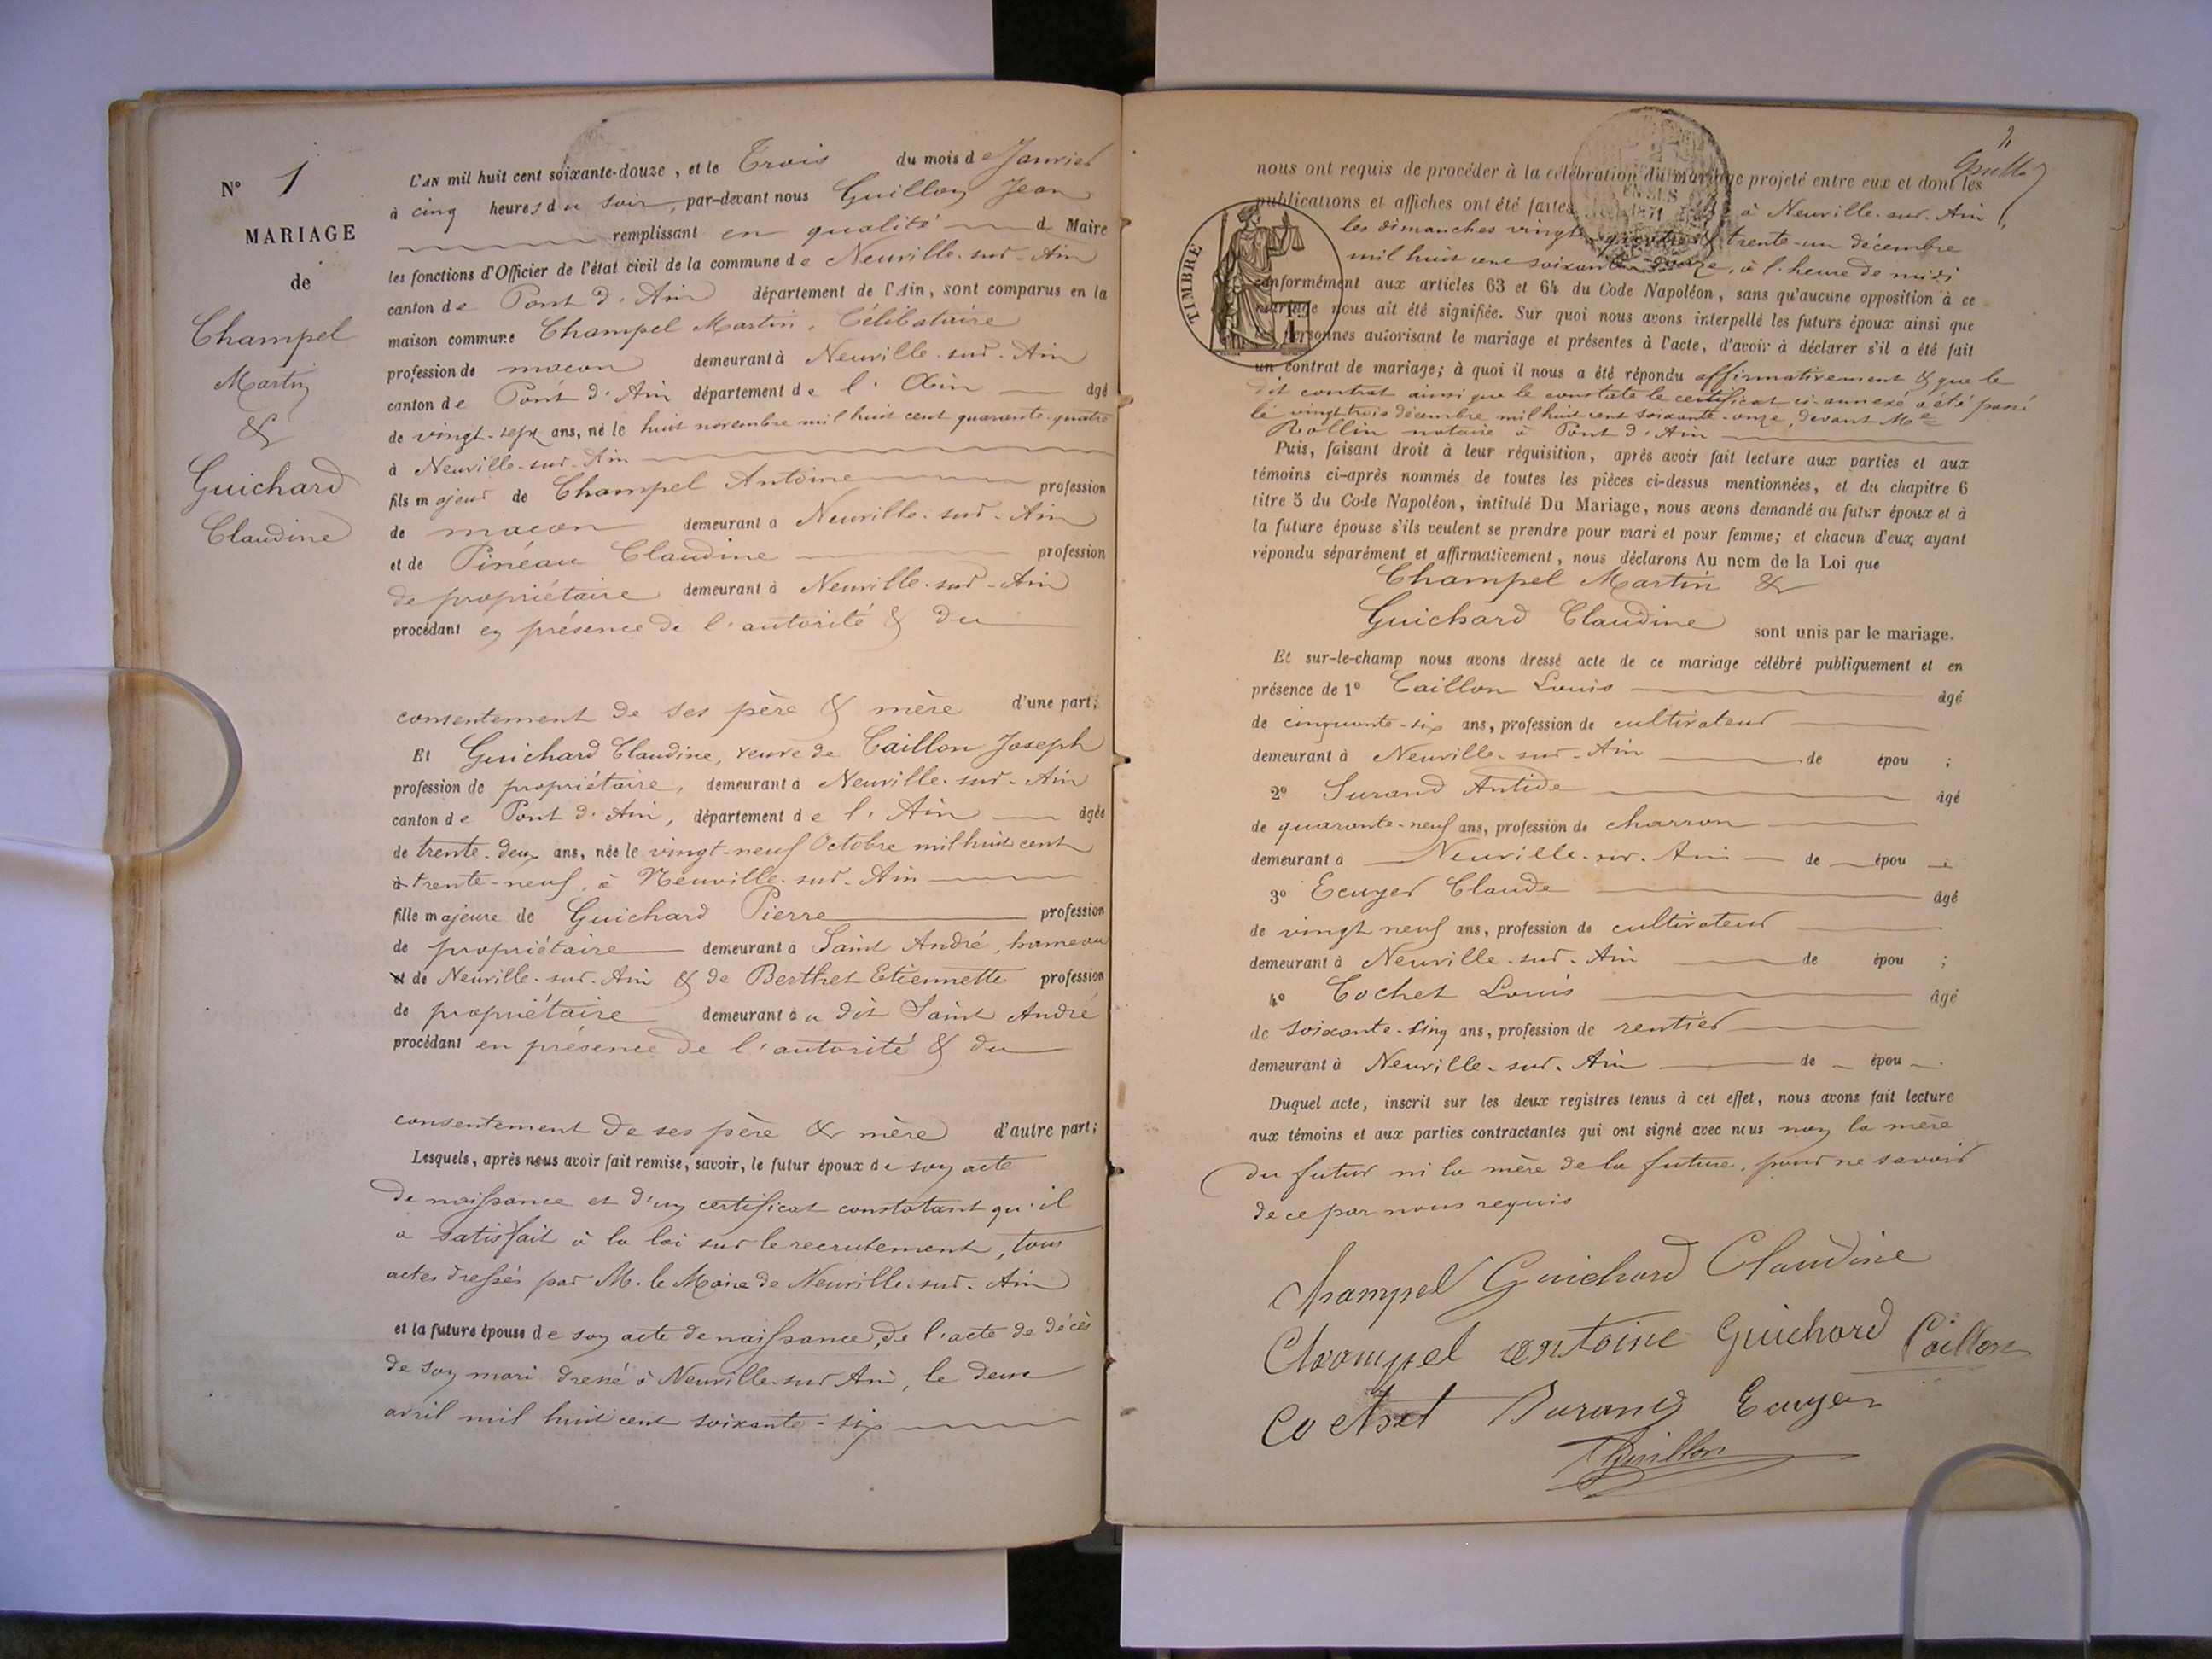 N° 1
MARIAGE
de
Champel
Martin
&
Guichard
Claudine
L'AN mil huit cent soixante-douze, et le Trois du mois de Janvier
à cinq heures du soir, par-devant nous Guillon Jean
remplissant en qualité d Maire
les fonctions d'Officier de l'état civil de la commune de Neuville-sur-Ain
canton de Pont d'Ain département de l'Ain, sont comparus en la
maison commune Champel Martin, Célibataire
profession de maçon demeurant à Neuville-sur-Ain
canton de Pont d'Ain département de l'Ain âgé
de vingt-sept ans, né le huit novembre mil huit cent quarante-quatre
à Neuville-sur-Ain
fils majeur de Champel Antoine profession
de maçon demeurant à Neuville-sur-Ain
et de Pinéau Claudine profession
de propriétaire demeurant à Neuville-sur-Ain
procédant en présence de l'autorité & du
consentement de ses père & mère d'une part;
Et Guichard Claudine, veuve de Caillon Joseph
profession de propriétaire, demeurant à Neuville-sur-Ain
canton de Pont d'Ain, département de l'Ain âgée
de trente-deux ans, née le vingt-neuf Octobre mil huit cent
à trente-neuf, à Neuville-sur-Ain
fille majeure de Guichard Pierre profession
de propriétaire demeurant à Saint André, hameau
et de Neuville-sur-Ain & de Berthet Etiennette profession
de propriétaire demeurant au dit Saint André
procédant en présence de l'autorité & du
consentement de ses père & mère d'autre part;
Lesquels, après nous avoir fait remise, savoir, le futur époux de son acte
de naissance et d'un certificat constatant qu'il
a satisfait à la loi sur le recrutement, tous
actes dressés par M. le Maire de Neuville-sur-Ain
et la future épouse de son acte de naissance, de l'acte de décès
de son mari dressé à Neuville-sur-Ain, le deux
avril mil huit cent soixante-six
2
nous ont requis de procéder à la célébration du mariage projeté entre eux et dont les
publications et affiches ont été faites à Neuville-sur-Ain
les dimanches vingt-quatre & trente-un décembre
mil huit cent soixante-onze, à l'heure de midi
TIMBRE
1871
conformément aux articles 63 et 64 du Code Napoléon, sans qu'aucune opposition à ce
mariage nous ait été signifiée. Sur quoi nous avons interpellé les futurs époux ainsi que
personnes autorisant le mariage et présentes à l'acte, d'avoir à déclarer s'il a été fait
un contrat de mariage; à quoi il nous a été répondu affirmativement & que le
dit contrat ainsi que le constate le certificat ci-annexé a été passé
le vingt trois décembre mil huit cent soixante-onze, devant Me
Rollin notaire à Pont d'Ain
Puis, faisant droit à leur réquisition, après avoir fait lecture aux parties et aux
témoins ci-après nommés de toutes les pièces ci-dessus mentionnées, et du chapitre 6
titre 5 du Code Napoléon, intitulé Du Mariage, nous avons demandé au futur époux et à
la future épouse s'ils veulent se prendre pour mari et pour femme; et chacun d'eux ayant
répondu séparément et affirmativement, nous déclarons Au nom de la Loi que
Champel Martin &
Guichard Claudine sont unis par le mariage.
Et sur-le-champ nous avons dressé acte de ce mariage célébré publiquement et en
présence de 1° Caillon Louis âgé
de cinquante-six ans, profession de cultivateur
demeurant à Neuville-sur-Ain de épou ;
2° Durand Antide âgé
de quarante-neuf ans, profession de charron
demeurant à Neuville-sur-Ain de épou ;
3° Ecuyer Claude âgé
de vingt neuf ans, profession de cultivateur
demeurant à Neuville-sur-Ain de épou ;
4° Cochet Louis âgé
de soixante-cinq ans, profession de rentier
demeurant à Neuville-sur-Ain de épou .
Duquel acte, inscrit sur les deux registres tenus à cet effet, nous avons fait lecture
aux témoins et aux parties contractantes qui ont signé avec nous non la mère
du futur ni la mère de la future, pour ne savoir
de ce par nous requis
Champel Guichard Claudine
Champel antoine Guichard Caillon
Cochet Durand Ecuyer
Guillon